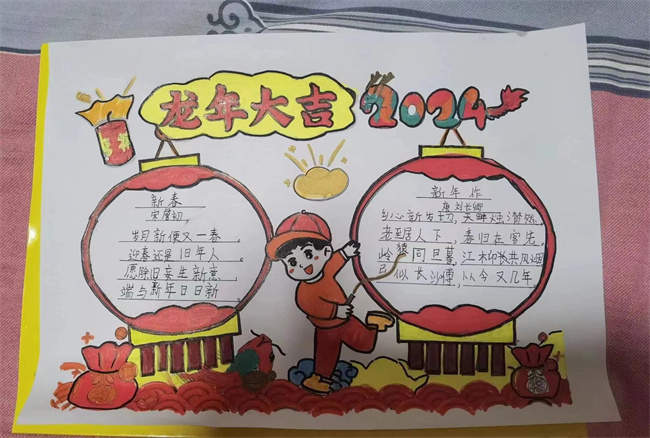 龙年大吉
2024
新春
宋 度初
岁月新便又一春,
迎春还是旧年人。
愿除旧妄生新意
端与新年日日新
新年作
唐 刘长卿
乡心新岁切,天畔
老至居人下,春归在客先。
岭猿同旦暮,江
已似长沙傅,从今又几年